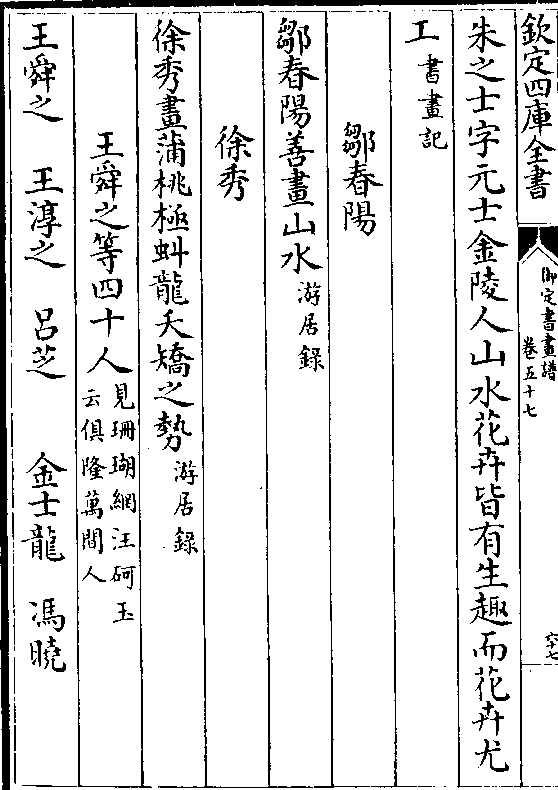 欽定四庫全書
御定書畫譜
卷五十七
六十七
朱之士字元士金陵人山水花卉皆有生趣而花卉尤
工書畫記
鄒春陽
鄒春陽善畫山水游居錄
徐秀
徐秀畫蒲桃極虯龍夭矯之勢游居錄
王舜之等四十人見珊瑚網汪砢玉
云俱隆萬間人
王舜之 王淳之 呂芝 金士龍 馮曉